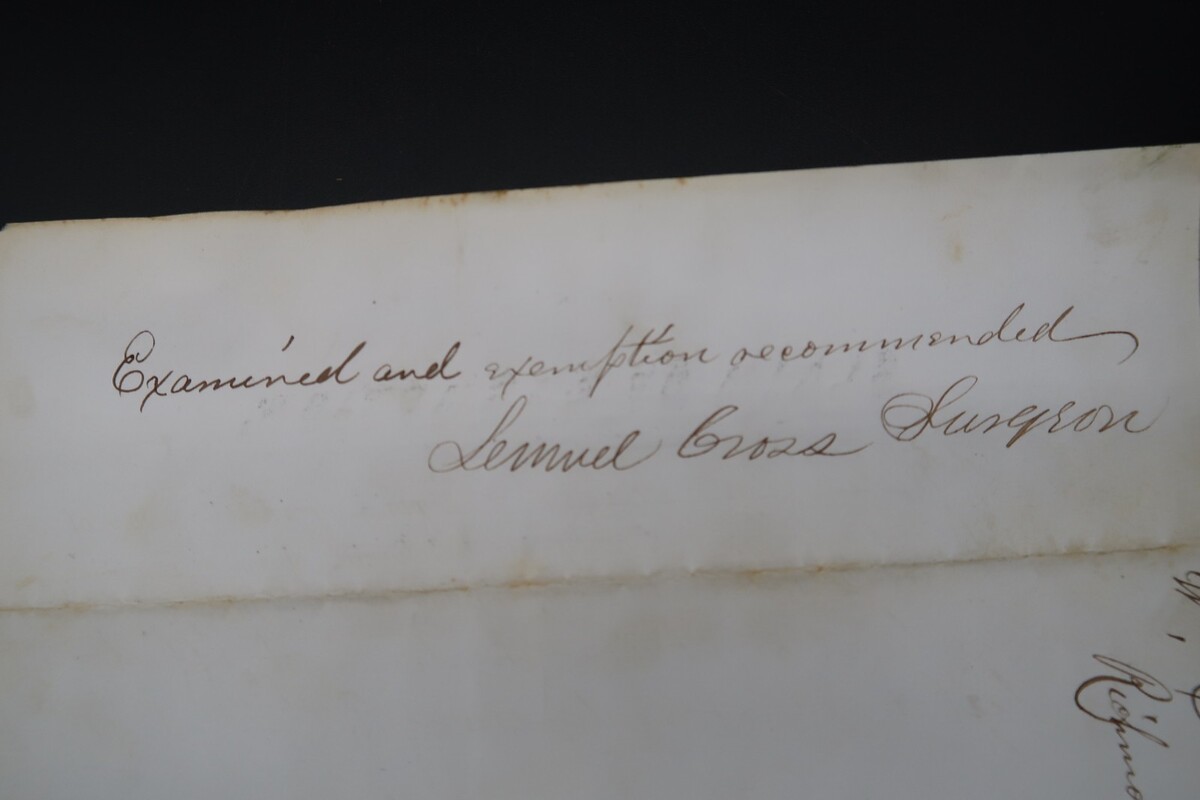 Examined and exemption recommended
Lemuel Cross Surgeon